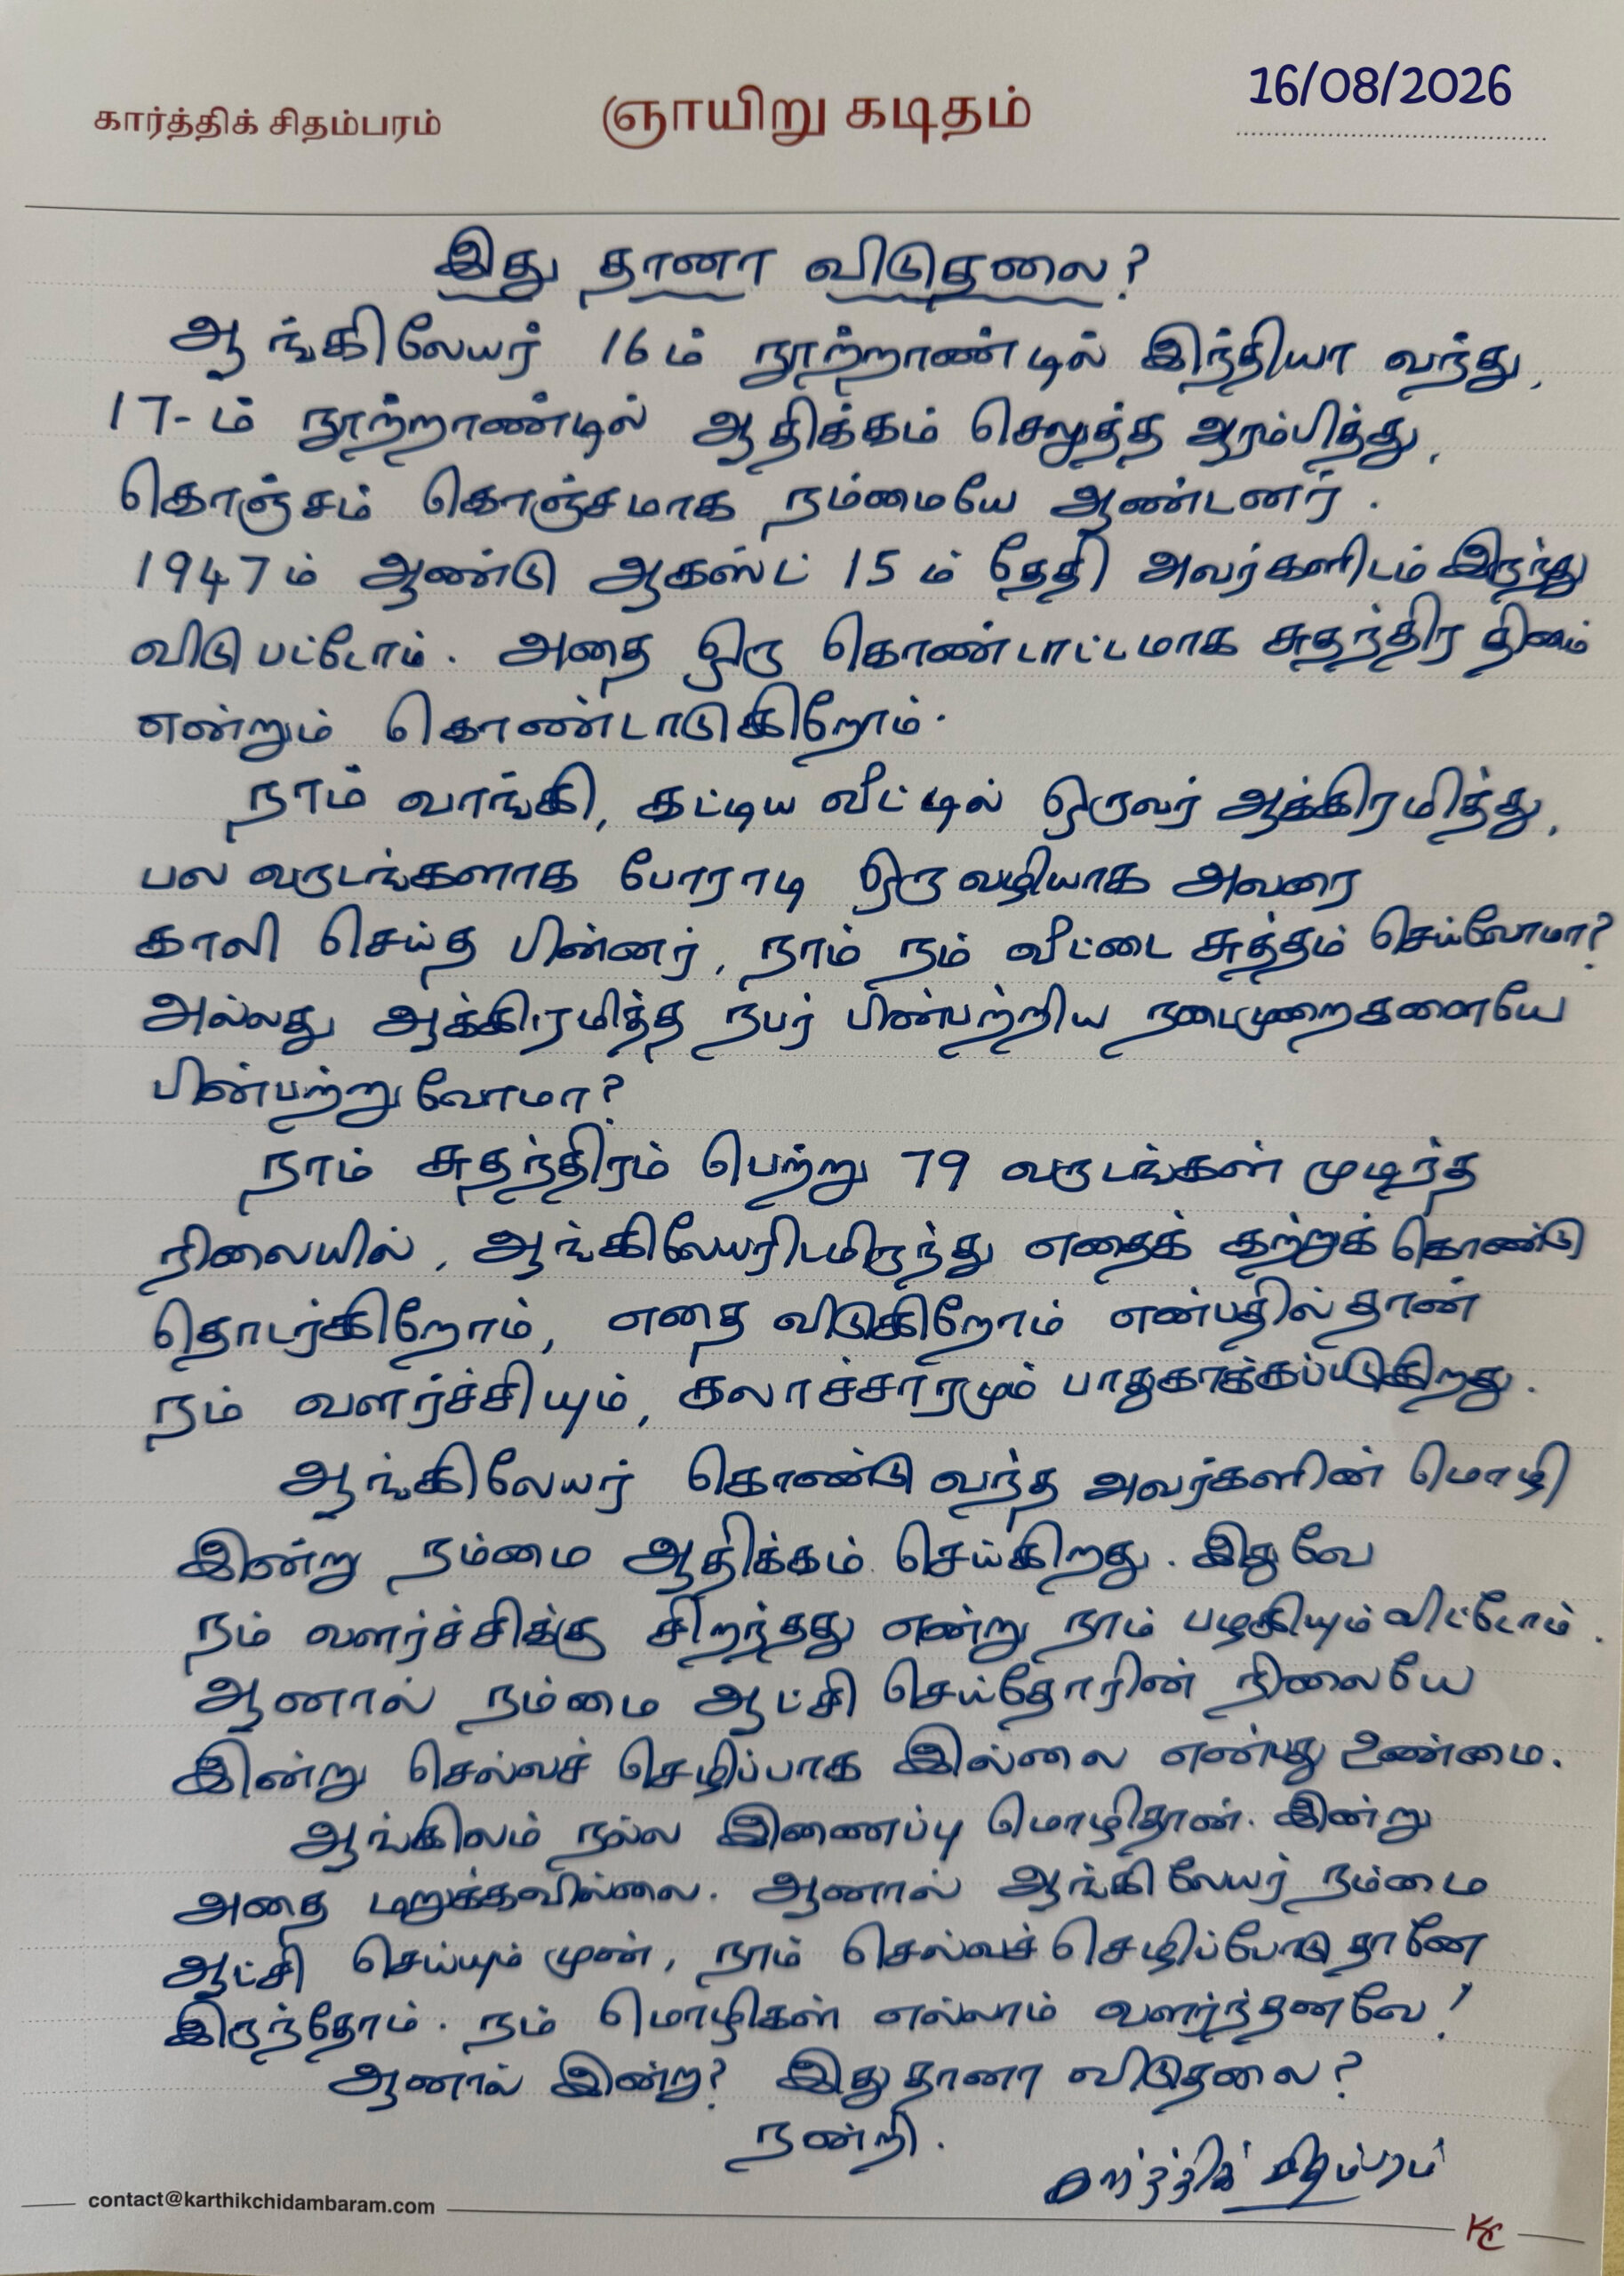 கார்த்திக் சிதம்பரம்
ஞாயிறு கடிதம்
16/08/2026
இது தானா விடுதலை?
ஆங்கிலேயர் 16ம் நூற்றாண்டில் இந்தியா வந்து,
17-ம் நூற்றாண்டில் ஆதிக்கம் செலுத்த ஆரம்பித்து,
கொஞ்சம் கொஞ்சமாக நம்மையே ஆண்டனர்.
1947ம் ஆண்டு ஆகஸ்ட் 15ம் தேதி அவர்களிடம் இருந்து
விடுபட்டோம். அதை ஒரு கொண்டாட்டமாக சுதந்திர தினம்
என்றும் கொண்டாடுகிறோம்.
நாம் வாங்கி, கட்டிய வீட்டில் ஒருவர் ஆக்கிரமித்து,
பல வருடங்களாக போராடி ஒருவழியாக அவரை
காலி செய்த பின்னர், நாம் நம் வீட்டை சுத்தம் செய்வோமா?
அல்லது ஆக்கிரமித்த நபர் பின்பற்றிய நடைமுறைகளையே
பின்பற்றுவோமா?
நாம் சுதந்திரம் பெற்று 79 வருடங்கள் முடிந்த
நிலையில், ஆங்கிலேயரிடமிருந்து எதைக் கற்றுக் கொண்டு
தொடர்கிறோம், எதை விடுகிறோம் என்பதில்தான்
நம் வளர்ச்சியும், கலாச்சாரமும் பாதுகாக்கப்படுகிறது.
ஆங்கிலேயர் கொண்டு வந்த அவர்களின் மொழி
இன்று நம்மை ஆதிக்கம் செய்கிறது. இதுவே
நம் வளர்ச்சிக்கு சிறந்தது என்று நாம் பழகியும் விட்டோம்.
ஆனால் நம்மை ஆட்சி செய்தோரின் நிலையே
இன்று செல்வச் செழிப்பாக இல்லை என்பது உண்மை.
ஆங்கிலம் நல்ல இணைப்பு மொழிதான். இன்று
அதை மறுக்கவில்லை. ஆனால் ஆங்கிலேயர் நம்மை
ஆட்சி செய்யும் முன், நாம் செல்வச் செழிப்போடு தானே
இருந்தோம். நம் மொழிகள் எல்லாம் வளர்ந்தனவே!
ஆனால் இன்று? இதுதானா விடுதலை?
நன்றி.
கார்த்திக் சிதம்பரம்
contact@karthikchidambaram.com
KC